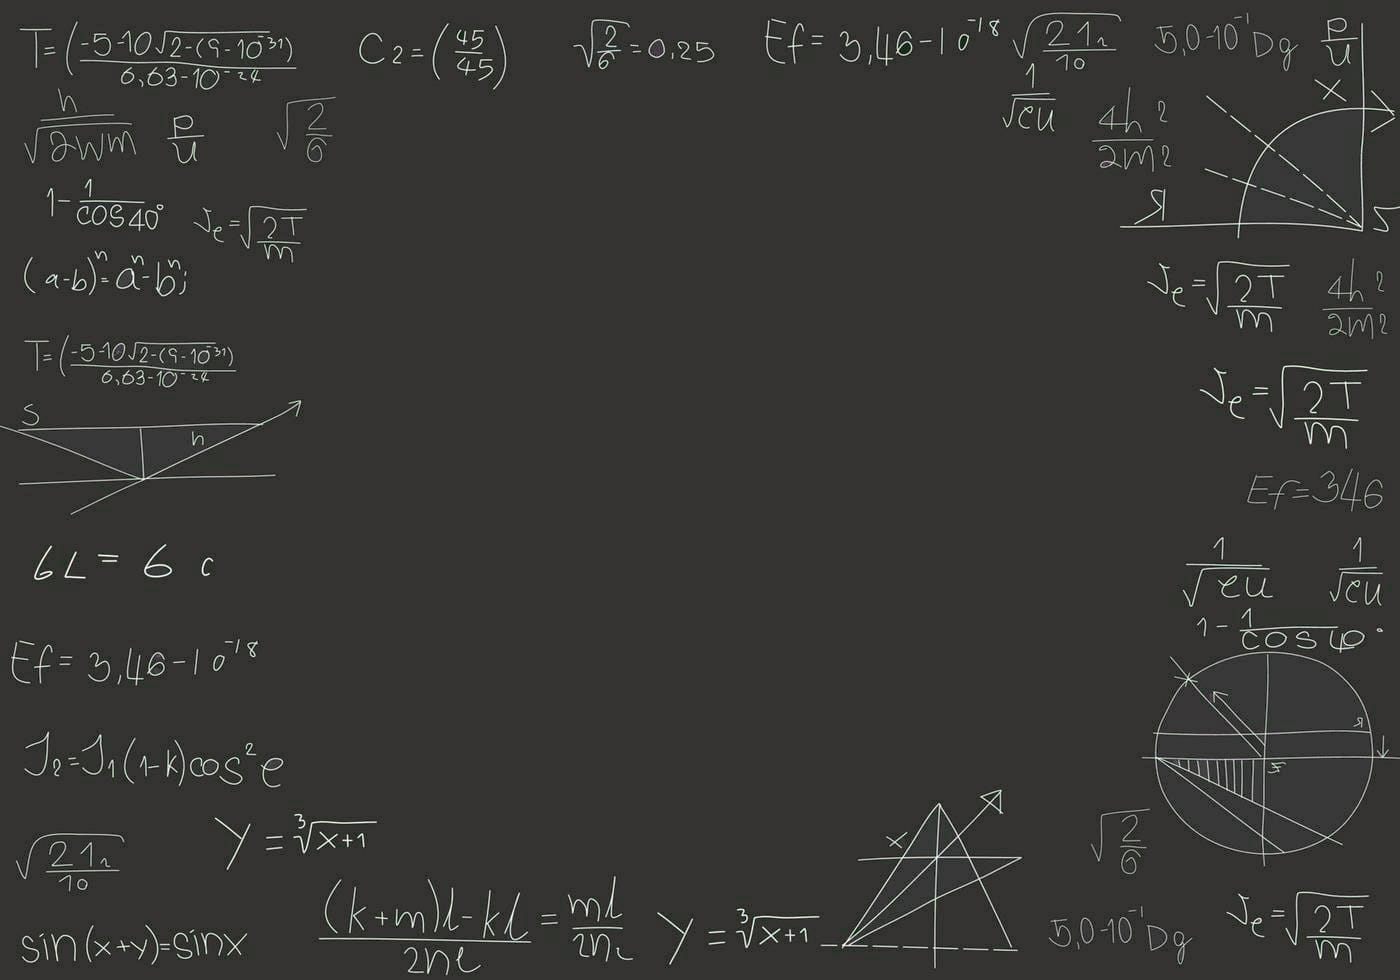 T=(-5-10√2-(9-10⁻³¹)/6,63-10⁻²⁴
C₂=(45/45)
√2/6=0,25
Ef=3,46-10⁻¹⁸
√21₂/10
5,0-10⁻¹Dg
p/u
h/√2wm
p/u
√2/6
1/√eu
4h²/2m²
X
1-1/cos40°
Je=√2T/m
Я
S
(a-b)ⁿ=aⁿ-bⁿ;
Je=√2T/m
4h²/2m²
T=(-5-10√2-(9-10⁻³¹)/6,63-10⁻²⁴
Je=√2T/m
S
h
Ef=346
6L=6 c
1/√eu
1/√eu
1-1/cos40°
Ef=3,46-10⁻¹⁸
Я
J₂=J₁(1-k)cos²e
Y=³√x+1
X
√2/6
√21₂/10
sin(x+y)=sinx
(k+m)l-kl/2ne=ml/2n₂
Y=³√x+1
5,0-10⁻¹Dg
Je=√2T/m